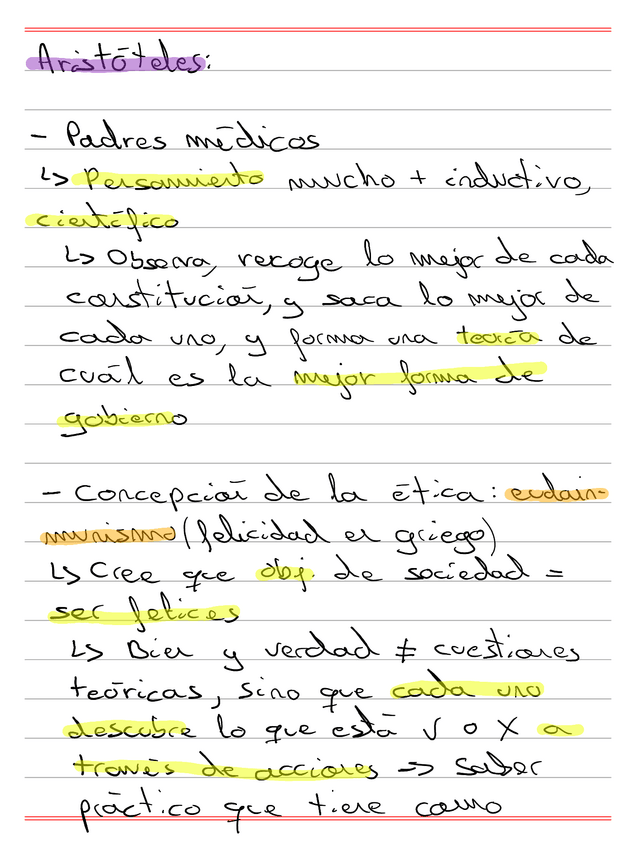 Aristóteles:
- Padres médicos
↳ Pensamiento mucho + inductivo,
científico
↳ Observa, recoge lo mejor de cada
constitución, y saca lo mejor de
cada uno, y forma una teoría de
cuál es la mejor forma de
gobierno
- Concepción de la ética: eudain-
munismo (felicidad en griego)
↳ Cree que obj. de sociedad =
ser felices
↳ Bien y verdad ≠ cuestiones
teóricas, sino que cada uno
descubre lo que está √ o X a
través de acciones -> saber
práctico que tiene como